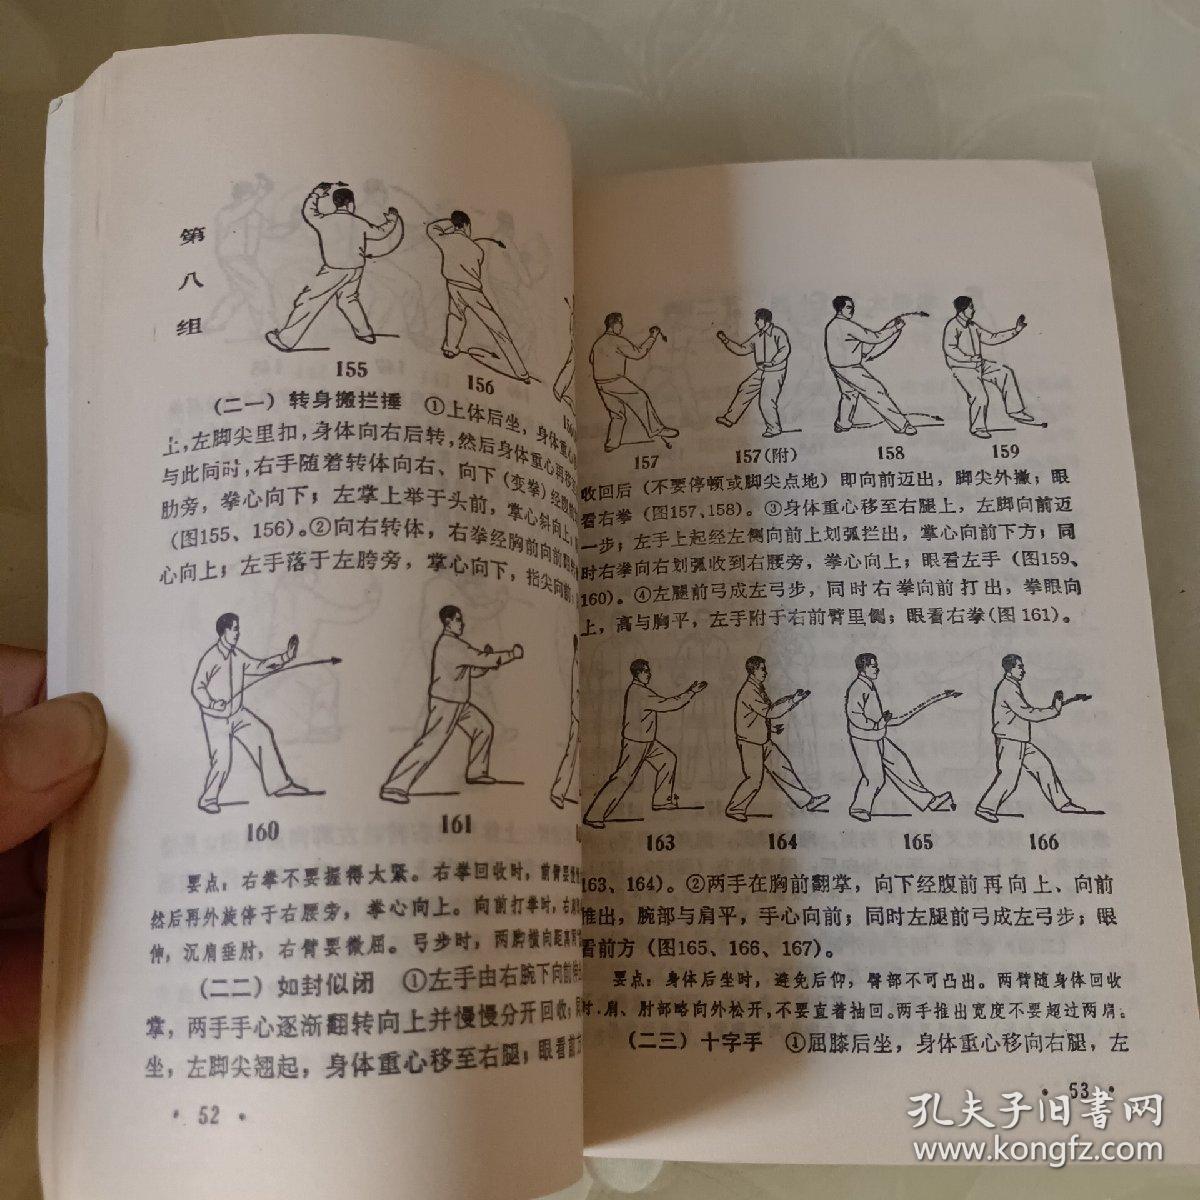 第八组
155
156
(二一) 转身搬拦捶 ①上体后坐，身体重心
上，左脚尖里扣，身体向右后转，然后身体重心再移
与此同时，右手随着转体向右、向下（变拳）经腹前
肋旁，拳心向下；左掌上举于头前，掌心斜向上；
(图155、156)。②向右转体，右拳经胸前向前
心向上；左手落于左胯旁，掌心向下，指尖向前；
160
161
要点：右拳不要握得太紧。右拳回收时，前臂要
然后再外旋停于右腰旁，拳心向上。向前打拳时，右
伸，沉肩垂肘，右臂要微屈。弓步时，两脚横向距离
(二二) 如封似闭 ①左手由右腕下向前伸
掌，两手手心逐渐翻转向上并慢慢分开回收；
坐，左脚尖翘起，身体重心移至右腿；眼看前
· 52 ·
157
157(附)
158
159
收回后（不要停顿或脚尖点地）即向前迈出，脚尖外撇；眼
看右拳（图157、158)。③身体重心移至右腿上，左脚向前迈
一步；左手上起经左侧向前上划弧拦出，掌心向前下方；同
时右拳向右划弧收到右腰旁，拳心向上；眼看左手（图159、
160)。④左腿前弓成左弓步，同时右拳向前打出，拳眼向
上，高与胸平，左手附于右前臂里侧；眼看右拳(图161)。
163
164
165
166
163、164)。②两手在胸前翻掌，向下经腹前再向上、向前
推出，腕部与肩平，手心向前；同时左腿前弓成左弓步；眼
看前方（图165、166、167)。
要点：身体后坐时，避免后仰，臀部不可凸出。两臂随身体回收
时，肩、肘部略向外松开，不要直着抽回。两手推出宽度不要超过两肩。
(二三) 十字手 ①屈膝后坐，身体重心移向右腿，左
· 53 ·
孔夫子旧书网
www.kongfz.com